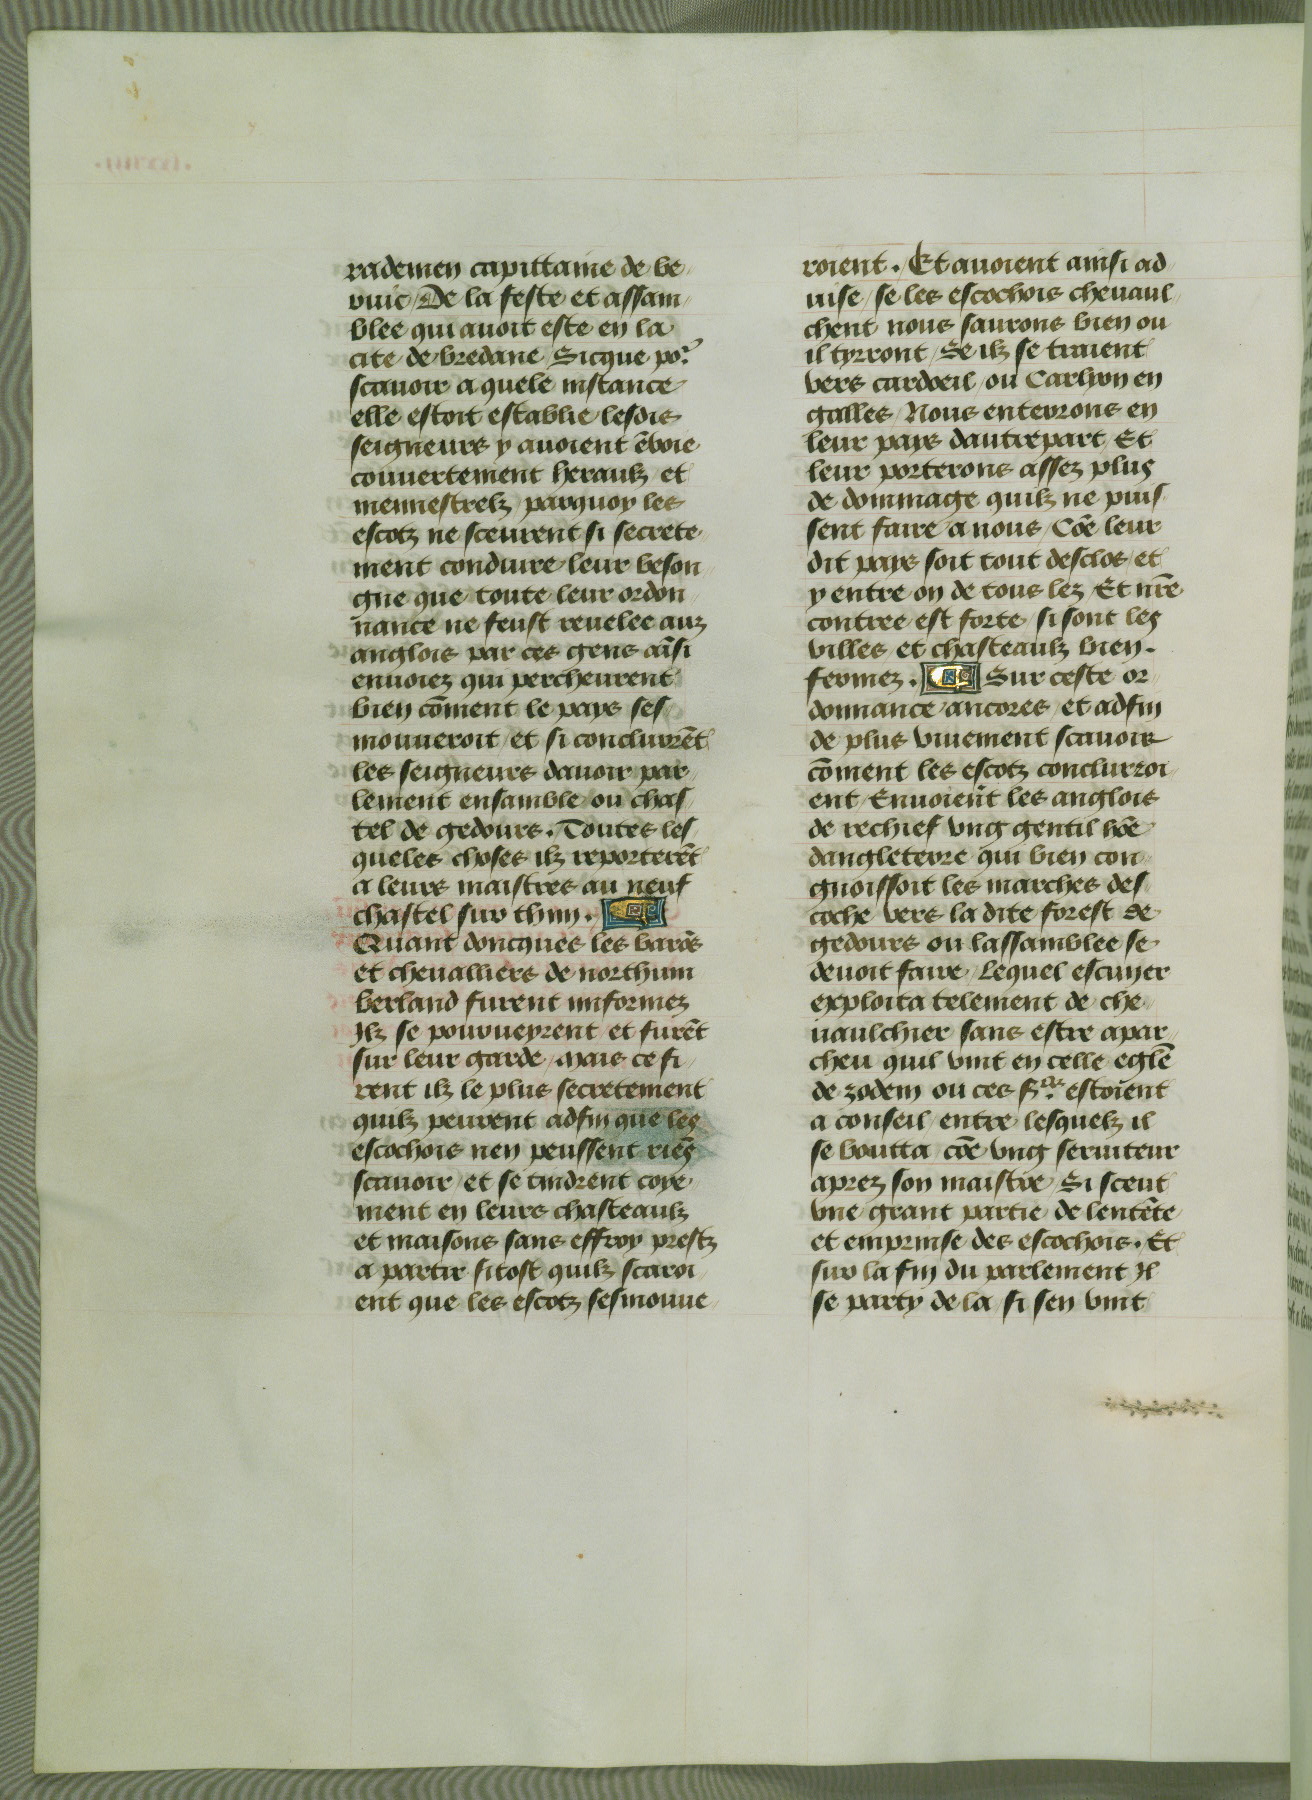 rademen capittaine de be
vuic / De la feste et assam
blee qui auoit este en la
cite de bredane / Sicque por
scauoir a quele instance
elle estoit establie / lesdis
seigneurs y auoient ẽvoie
couuertement heraulz et
mennestrelz / parquoy les
escotz ne sceurent si secrete
ment conduire leur beson
gne que toute leur ordon
nance ne feust reuelee aux
anglois par ces gens aĩsi
enuoiez qui percheurent
bien cõment le pays ses
mouueroit / et si conclurrẽt
les seigneurs dauoir par
lement ensamble ou chas
tel de gedours. Toutes les
queles choses ilz reporterẽt
a leurs maistres au neuf
chastel sur thin.
Quant doncques les barõs
et cheualliers de northum
berland furent informez
Ilz se pourueyrent et furẽt
sur leur garde / mais ce fi
rent ilz le plus secretement
quilz peurent adfin que les
escochois nen peussent riẽs
scauoir / et se tindrent coye
ment en leurs chasteaulz
et maisons sans effroy prestz
a partir sitost quilz scaroi
ent que les escotz sesmouue
roient. Et auoient ainsi ad
uise / se les escochois cheuaul
chent nous saurons bien ou
il tyrront / Se ilz se traient
vers cardoeil / ou Carlyon en
galles / Nous enterrons en
leur pays dautrepart / Et
leur porterons assez plus
de dommage quilz ne puis
sent faire a nous / Cõe leur
dit pays soit tout desclos / et
y entre on de tous lez / Et nr̃e
contree est forte / si sont les
villes et chasteaulz bien.
fermez. Sur ceste or
donnance ancores / et adfin
de plus viuement scauoir
cõment les escotz conclurroi
ent / Enuoierẽt les anglois
de rechief vng gentil hõe
dangleterre qui bien con
gnoissoit les marches des
coche vers la dite forest de
gedours ou lassamblee se
deuoit faire / Lequel escuyer
exploita telement de che
uaulchier sans estre apar
cheu quil vint en celle eglẽ
de zodem ou ces srs estoient
a conseil / entre lesquelz il
se boutta cõe vng seruiteur
aprez son maistre / Si sceut
vne grant partie de lentẽte
et emprinse des escochois. Et
sur la fin du parlement Il
se party de la / si sen vint